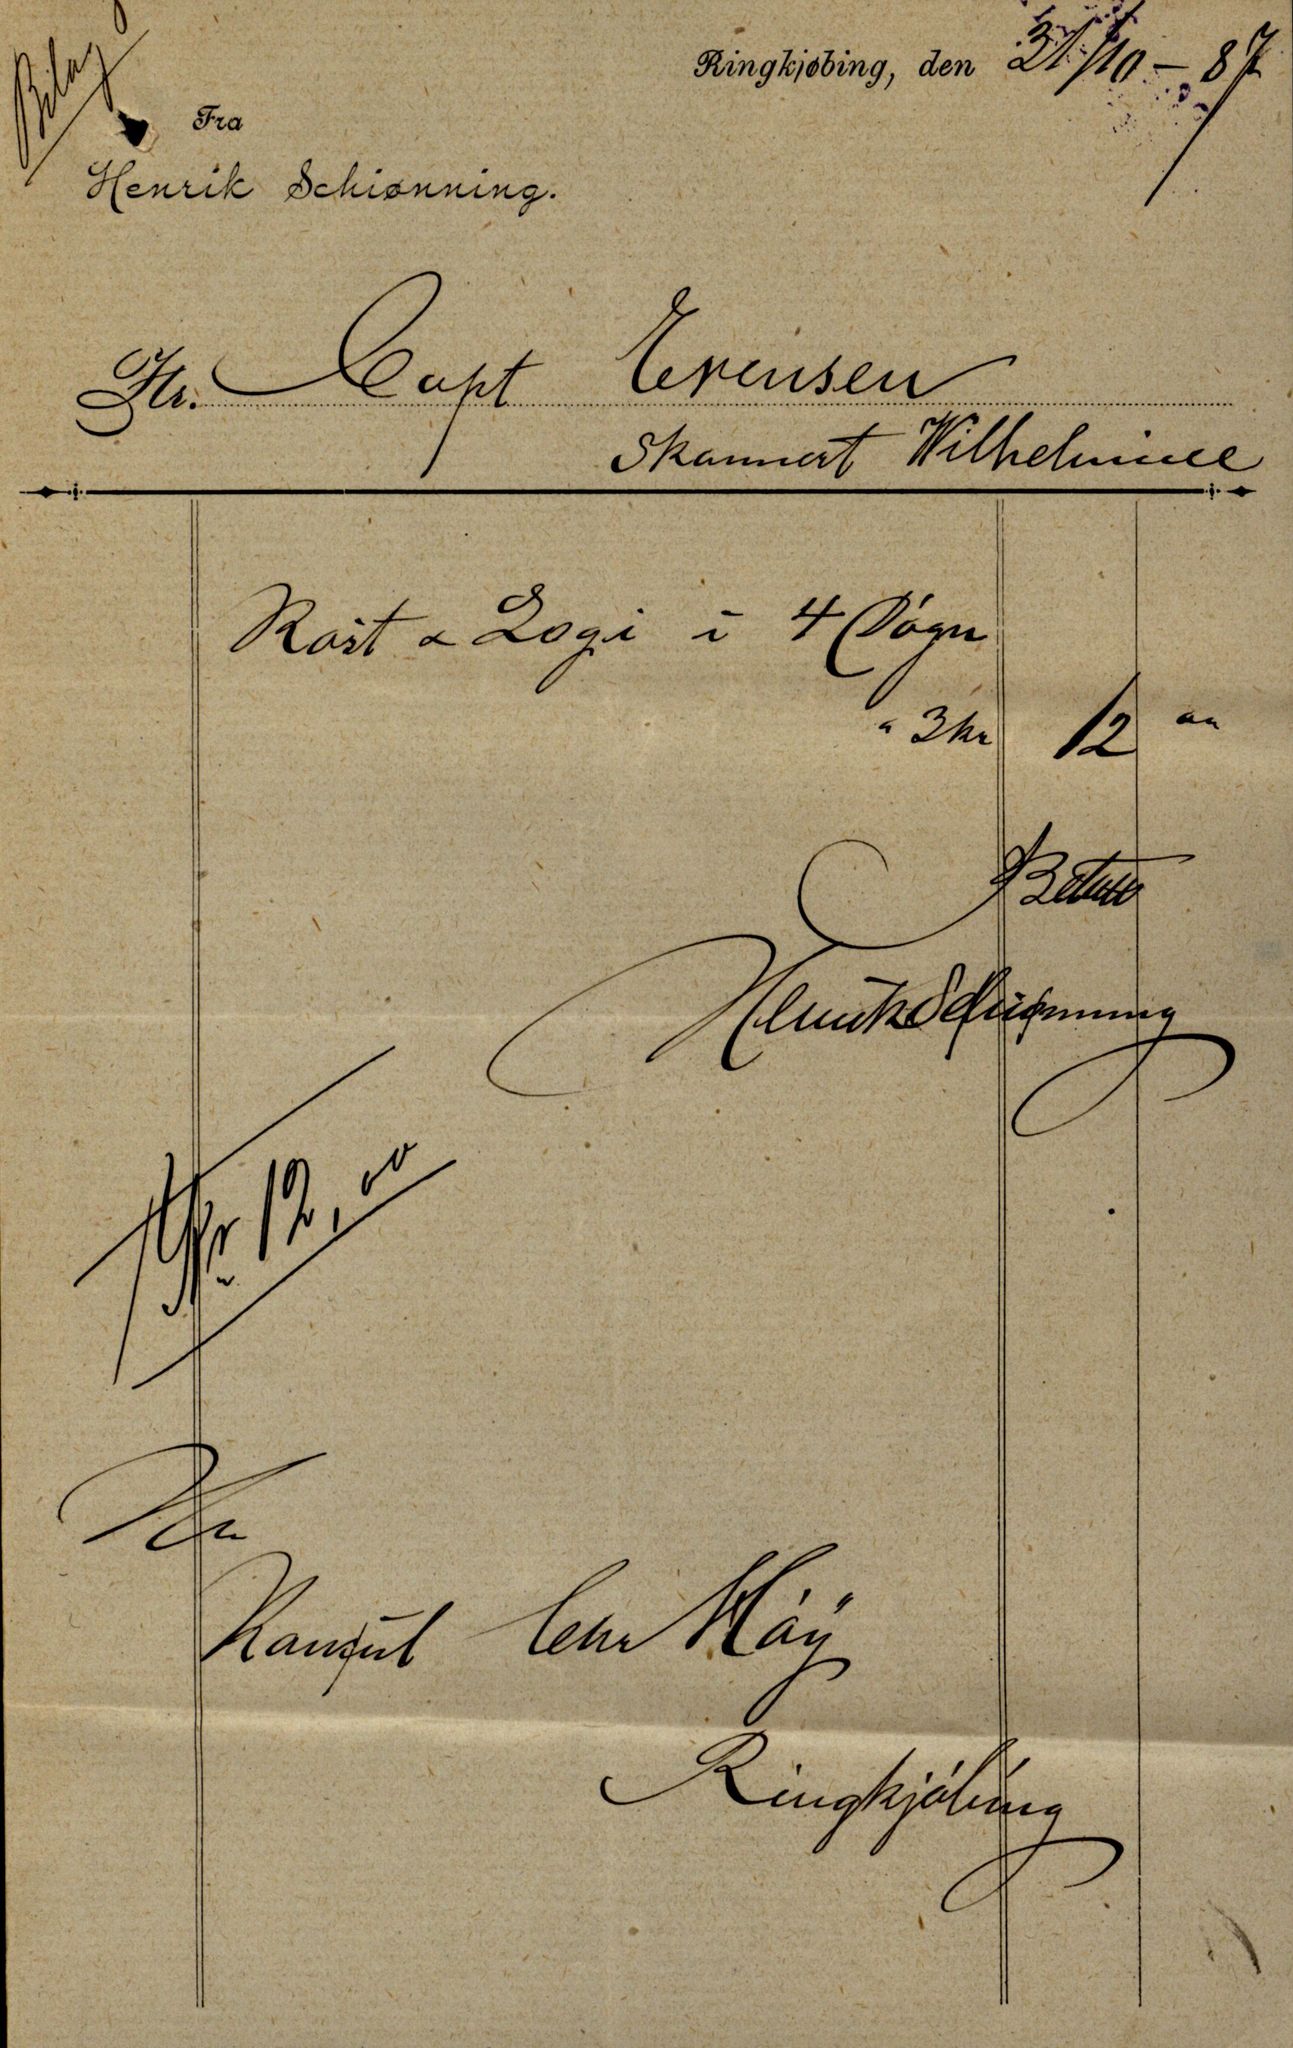 Bilag
Ringkjøbing, den 31/10 - 87
Fra
Henrik Schiønning.
Hr. Capt Evensen
Skonnert Wilhelmine
Kost & Logi i 4 Døgn
a 3 kr 12 "
Betalt
Henrik Schiønning
Kr 12,00
Hr
Konsul Chr Höÿ
Ringkjóbing